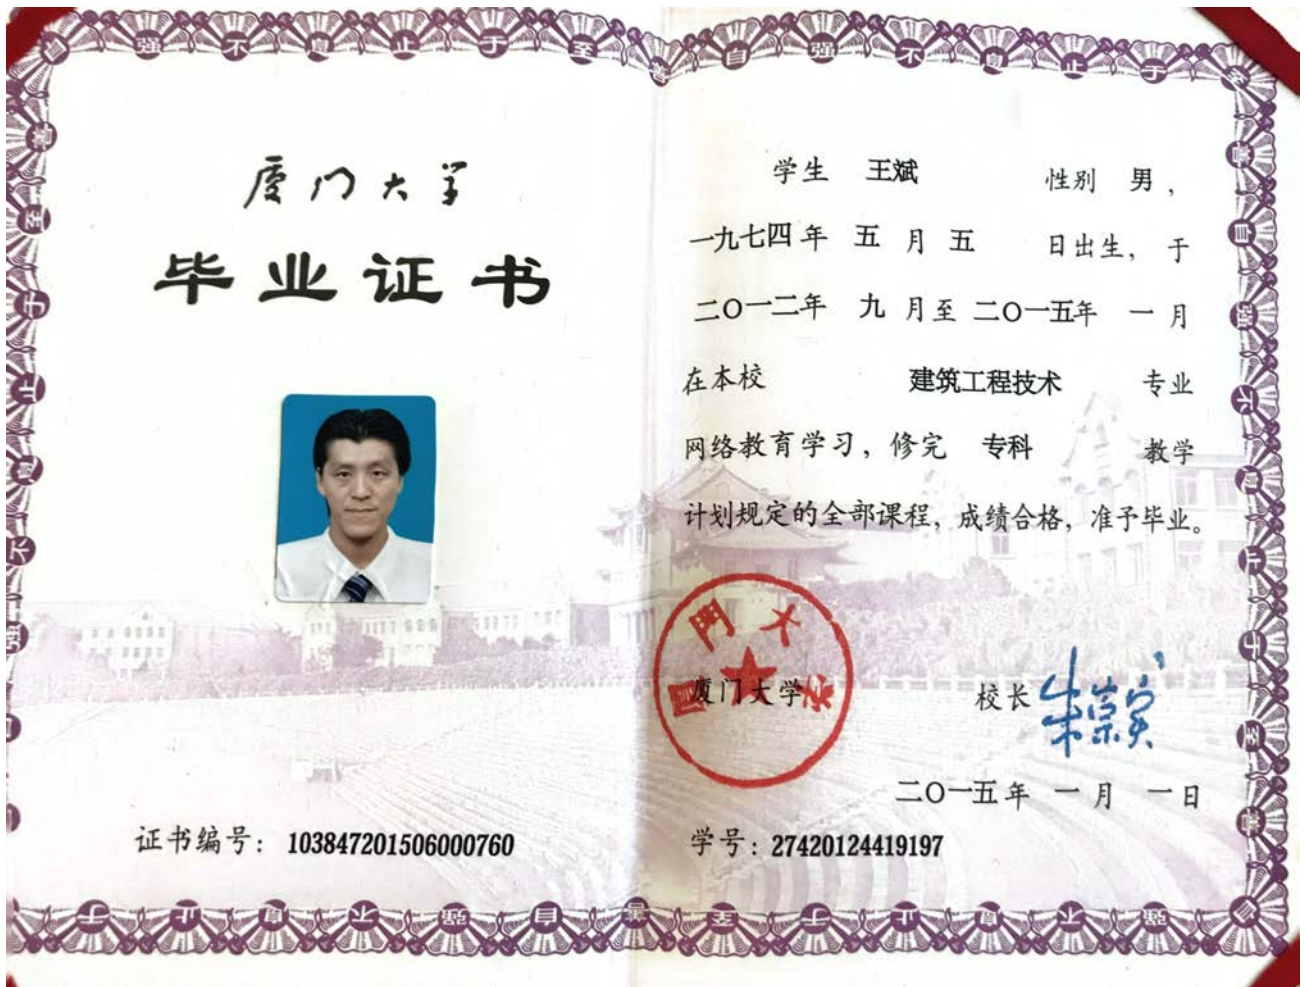 厦门大学
毕业证书
证书编号：103847201506000760
学生 王斌 性别 男，
一九七四年 五 月 五 日出生，于
二〇一二年 九 月至 二〇一五年 一 月
在本校 建筑工程技术 专业
网络教育学习，修完 专科 教学
计划规定的全部课程，成绩合格，准予毕业。
厦门大学
厦门大学 校长 朱崇实
二〇一五年 一 月 一 日
学号：27420124419197
自强不息止于至善